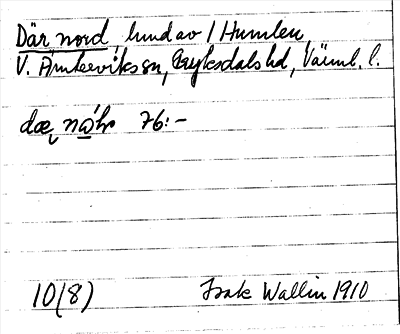 Där nord lund av / Humlen
V. Ämterviks sn, Fryksdals hd, Värml. l.
76:-
10(8) Isak Wallin 1910